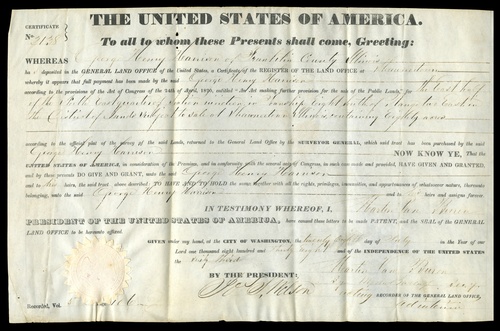 THE UNITED STATES OF AMERICA.
CERTIFICATE
No. 2138
To all to whom these Presents shall come, Greeting:
WHEREAS George Henry Harrison of Franklin County Illinois
ha deposited in the GENERAL LAND OFFICE of the United States, a Certificate of the REGISTER OF THE LAND OFFICE at Shawneetown
whereby it appears that full payment has been made by the said George Henry Harrison according to
the provisions of the Act of Congress of the 24th April, 1820, entitled "An Act making further provision for the sale of the Public Lands," for the East half
of the South East quarter of Section nineteen in Township eight South of Range two East in
the District of Lands subject to sale at Shawneetown Illinois containing eighty acres
according to the official plat of the survey of the said Lands, returned to the General Land Office by the SURVEYOR GENERAL, which said tract has been purchased by the said
George Henry Harrison NOW KNOW YE, That the
UNITED STATES OF AMERICA, in consideration of the Premises, and in conformity with the several acts of Congress, in such case made and provided, HAVE GIVEN AND GRANTED,
and by these presents DO GIVE AND GRANT, unto the said George Henry Harrison
and to his heirs, the said tract above described: TO HAVE AND TO HOLD the same, together with all the rights, privileges, immunities, and appurtenances of whatsoever nature, thereunto
belonging, unto the said George Henry Harrison and to his heirs and assigns forever.
IN TESTIMONY WHEREOF, I, Martin Van Buren
PRESIDENT OF THE UNITED STATES OF AMERICA, have caused these Letters to be made PATENT, and the SEAL of the GENERAL
LAND OFFICE to be hereunto affixed.
GIVEN under my hand, at the CITY OF WASHINGTON, the day of in the Year of our
Lord one thousand eight hundred and thirty eight and of the INDEPENDENCE OF THE UNITED STATES
the sixty third
BY THE PRESIDENT: Martin Van Buren
By Sec'y.
Acting RECORDER OF THE GENERAL LAND OFFICE,
ad interim
Recorded, Vol.